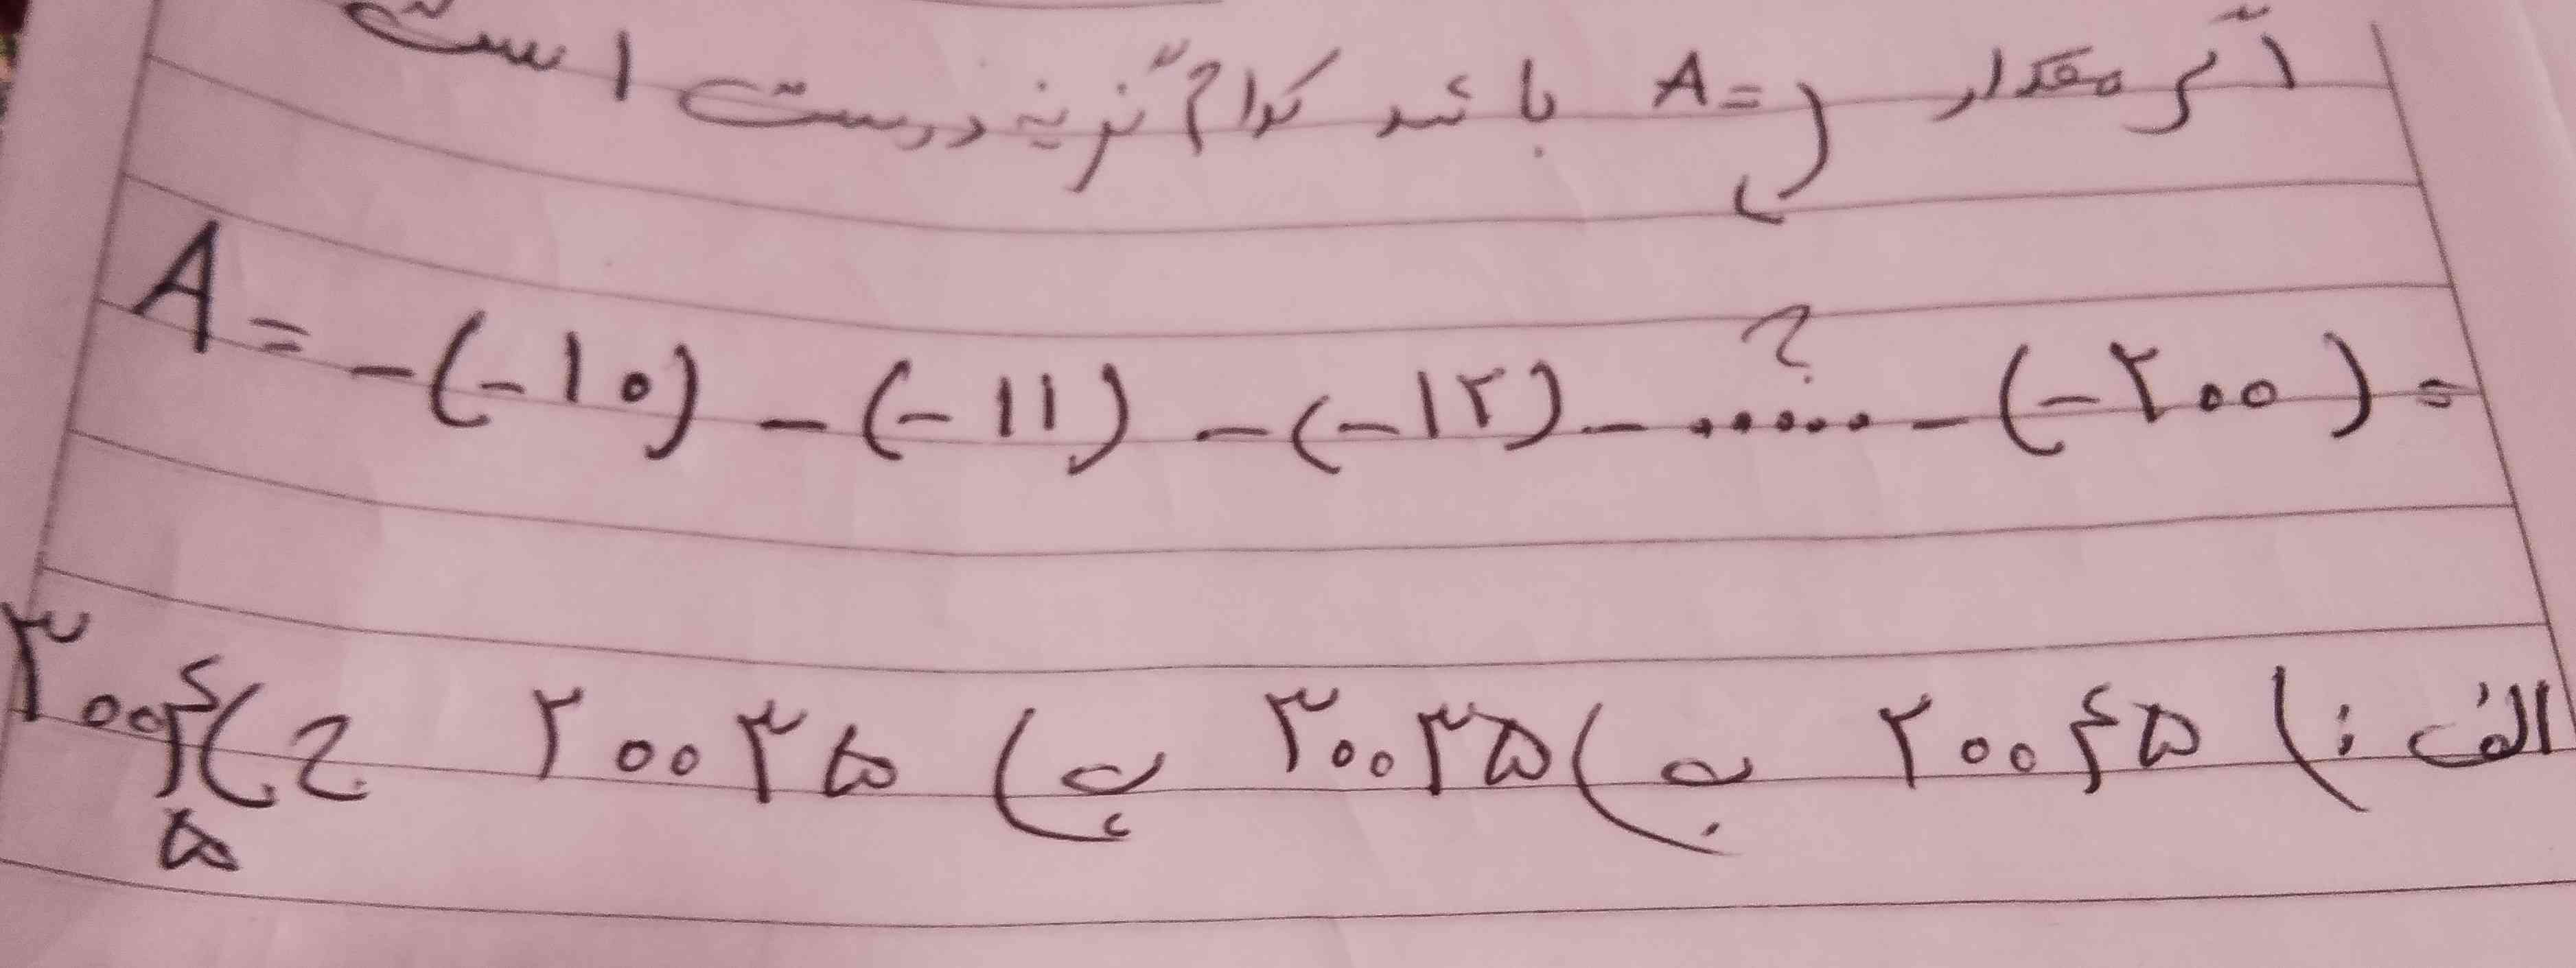 اگر مقدار A= باشد کدام گزینه درست است
A= -(-۱۰) -(-۱۱) -(-۱۲) - ...... -(-۲۰۰) =
؟
الف:) ۲۰۰۴۵ ب) ۳۰۰۳۵ پ) ۲۰۰۳۵ ج) ۳۰۰۴۵